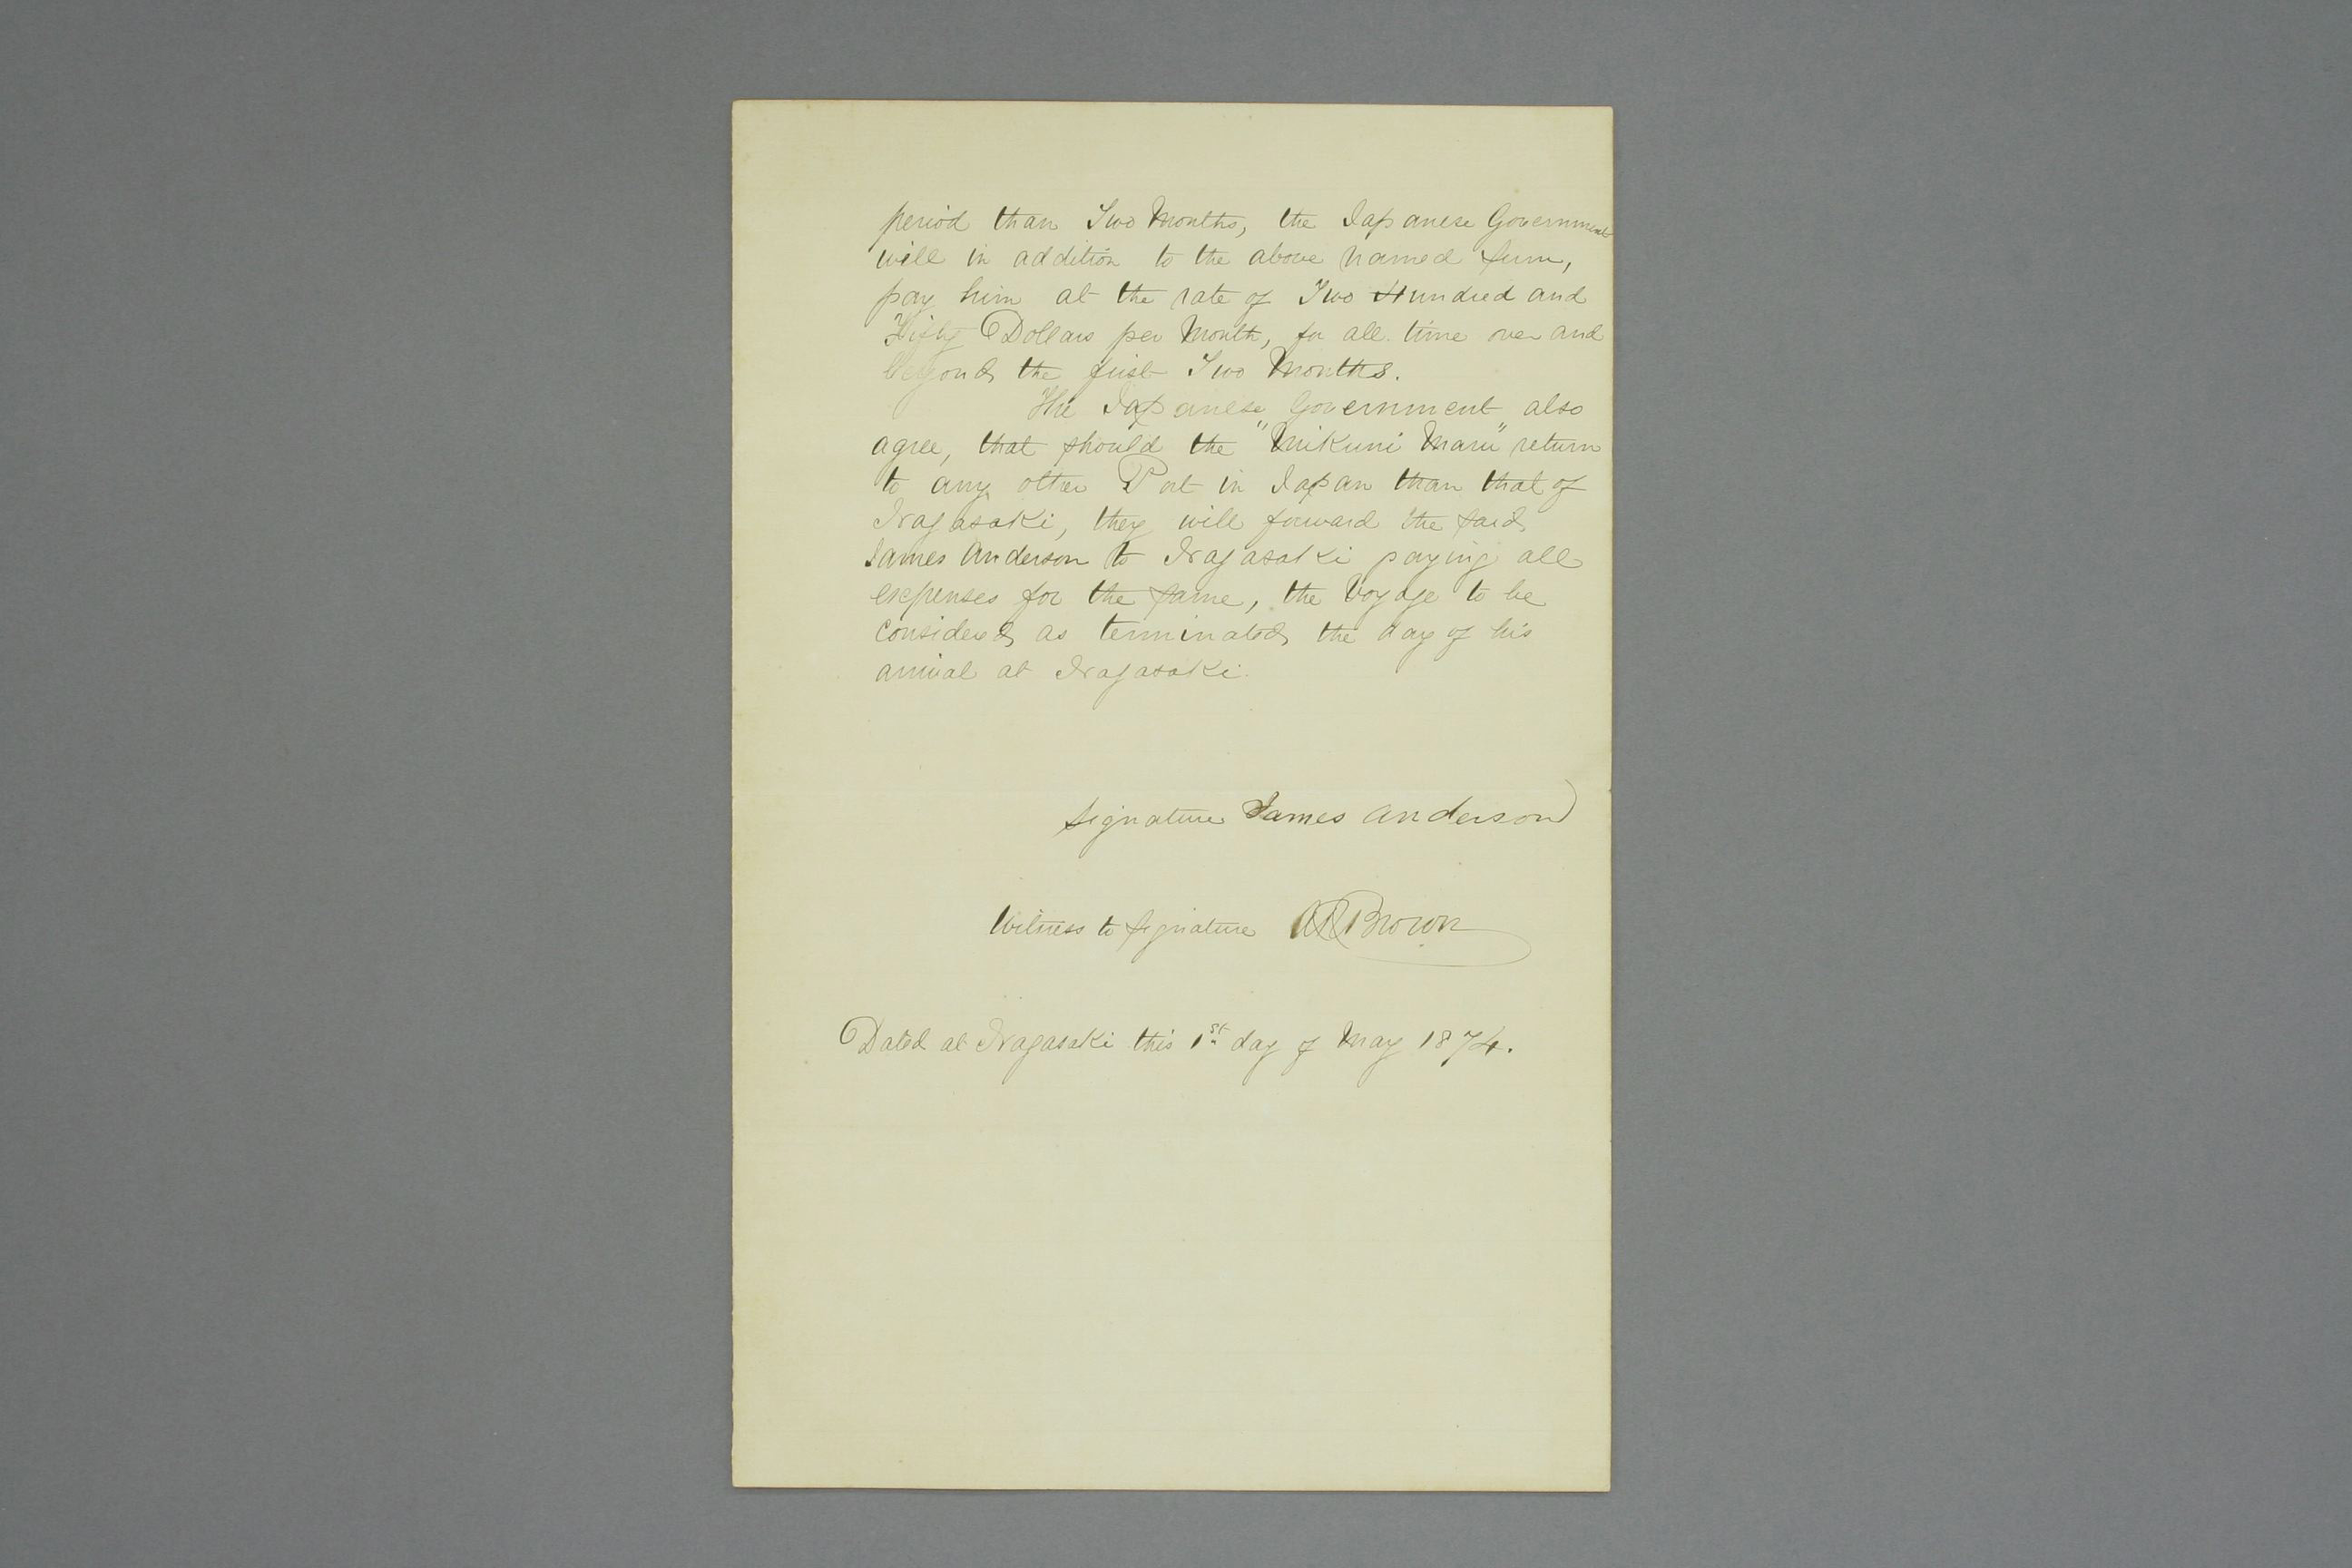 period than Two Months, the Japanese Government
will in addition to the above named sum,
pay him at the rate of Two Hundred and
Fifty Dollars per Month, for all time over and
beyond the first Two Months.
The Japanese Government also
agree, that should the "Mikuni Maru" return
to any other Port in Japan than that of
Nagasaki, they will forward the said
James Anderson to Nagasaki paying all
expenses for the same, the Voyage to be
considered as terminated the day of his
arrival at Nagasaki.
Signature James Anderson
Witness to Signature AR Brown
Dated at Nagasaki this 1st day of May 1874.